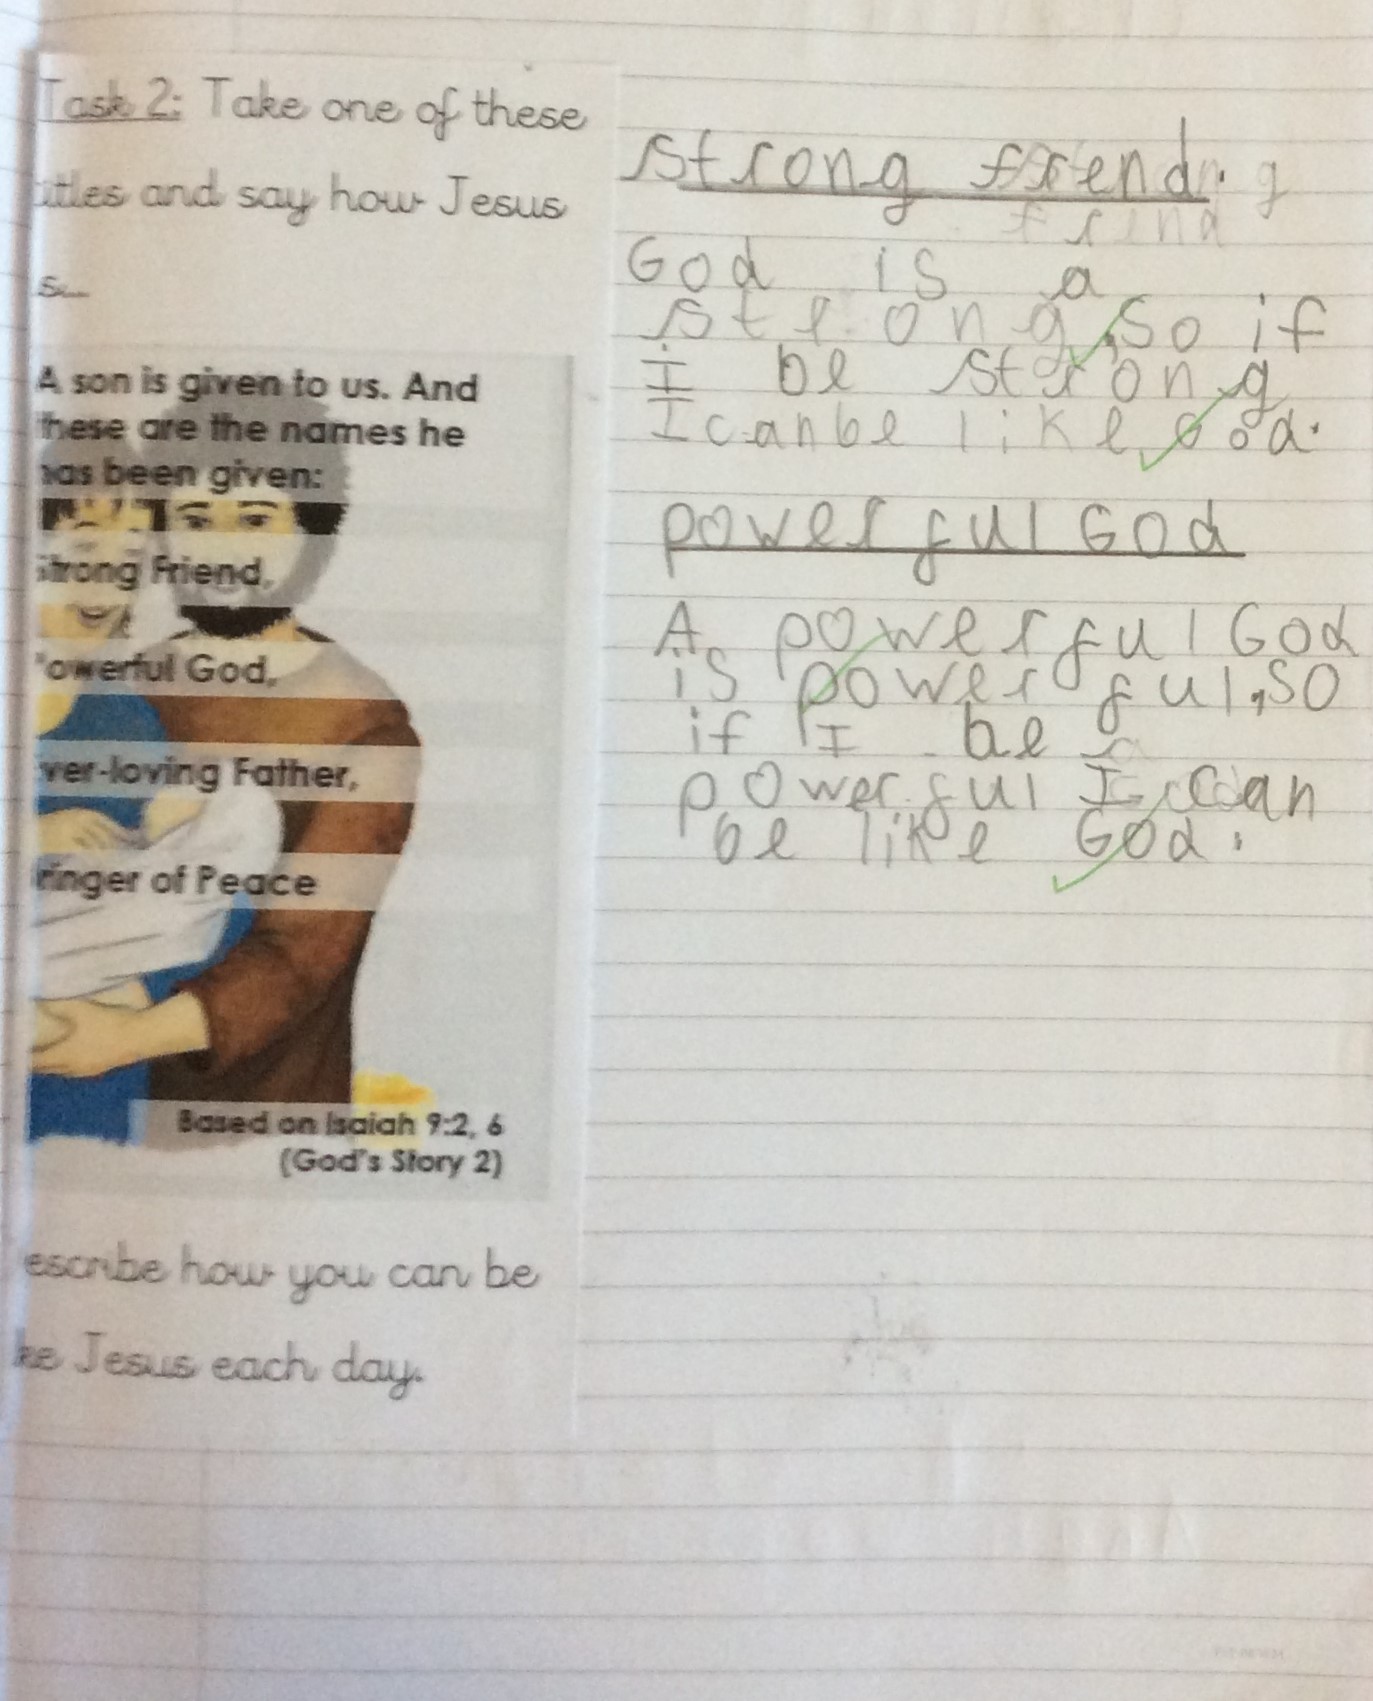 Task 2: Take one of these
titles and say how Jesus
is...
A son is given to us. And
these are the names he
has been given:
Strong Friend,
Powerful God,
Ever-loving Father,
Bringer of Peace
Based on Isaiah 9:2, 6
(God's Story 2)
escribe how you can be
ke Jesus each day.
strong friend.
God is a
strong, so if
I be strong
I can be like God.
powerful God
A powerful God
is powerful, so
if I be
powerful I can
be like God.